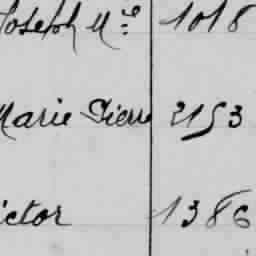 Joseph Mie 1018
Marie Pierre 2153
ictor 1386